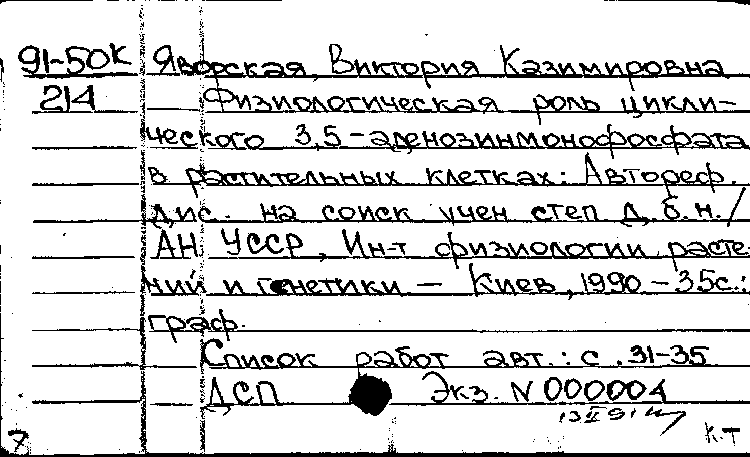 91-50К Яворская, Виктория Казимировна
214 Физиологическая роль цикли-
ческого 3,5-аденозинмонофосфата
в растительных клетках: Автореф.
дис. на соиск учен степ Д.б.н./
АН УССР, Ин-т физиологии расте-
ний и генетики — Киев, 1990 - 35с.:
граф.
Список работ авт.: с. 31-35
ДСП Экз. N 000004
13 II 91
7 К.Т